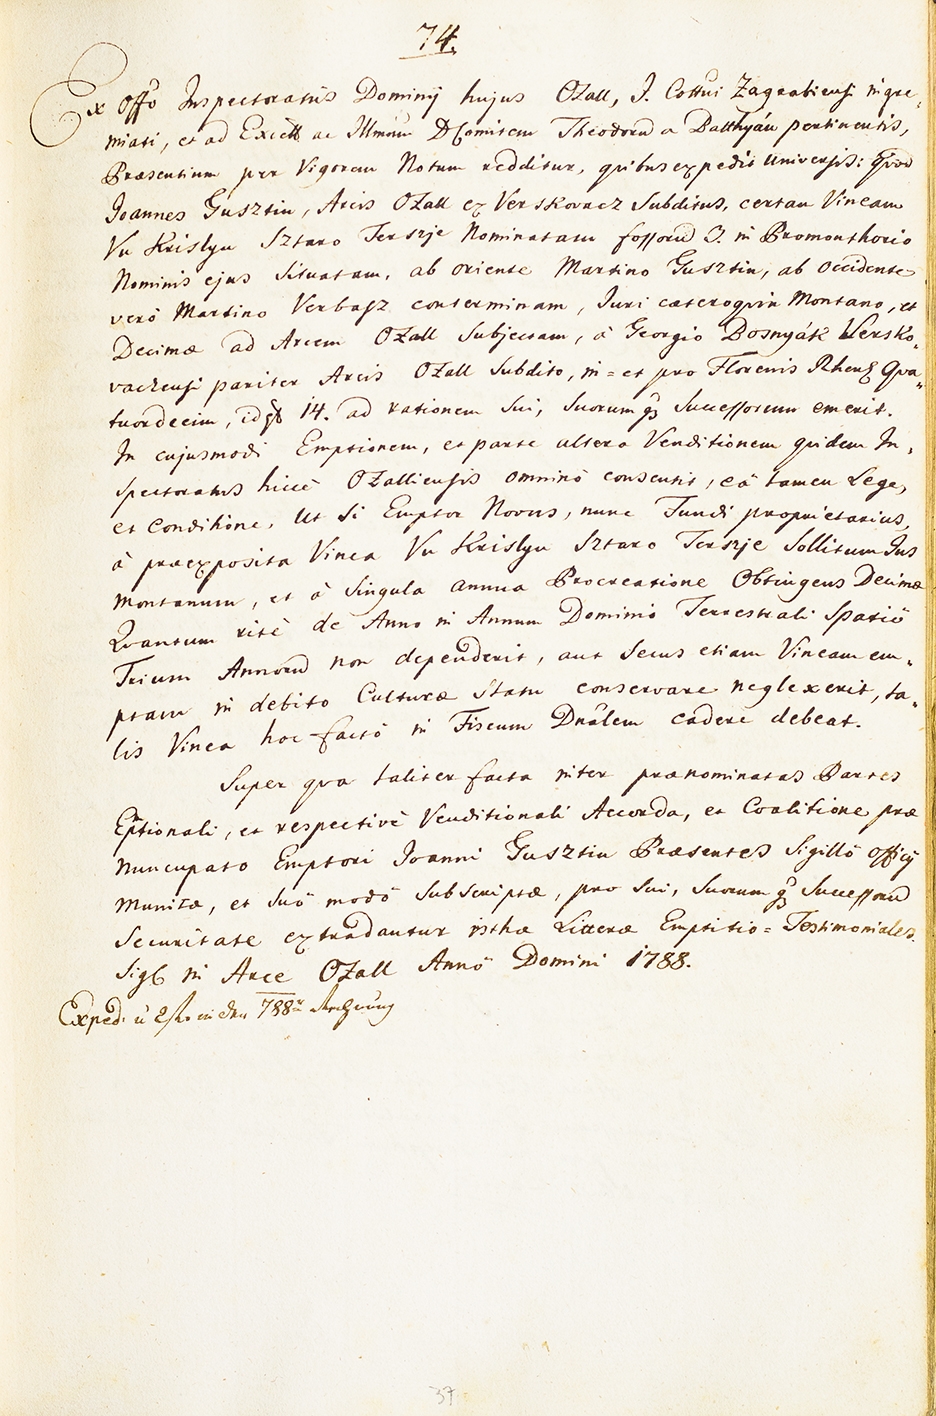 74.
Ex Offo Inspectoratûs Dominij hujus Ozall, I. Cottui Zagrabiensi ingre,,
miati, et ad Excell ac Illmum D Comitem Theodorum a Batthyán pertinentis,
Præsentium per Vigorem Notum redditur, quibus expedit Universis: Quod
Joannes Gusztin, Arcis Ozall ex Verskovacz Subditus, certam Vineam
Vu Krislyu Sztaro Terszje Nominatam fossorum 3. in Promonthorio
Nominis ejus Situatam, ab oriente Martino Gusztin, ab Occidente
verò Martino Verbasz conterminam, Juri cæteroquin Montano, et
Decimæ ad Arcem Ozall Subjectam, à Georgio Bosnyák Versko,,
vaczensi pariter Arcis Ozall Subdito, in = et pro Florenis Rhen Qva,,
tuordecim, id 14. ad rationem Sui, Suorumq Successorum emerit.
In cujusmodi Emptionem, et parte altera Venditionem quidem In,,
spectoratus hicce Ozalliensis omninò consentit, eâ tamen Lege,
et Conditione, Ut Si Emptor Novus, nunc Fundi proprietarius,
à præexposita Vinea Vu Krislyu Sztaro Terszje Sollitum Jus
Montanum, et à Singula annua Procreatione Obtingens Decimæ
Qvantum ritè de Anno in Annum Dominio Terrestrali Spatiô
Trium Annorum non dependerit, aut Secus etiam Vineam em,,
ptam in debito Culturæ Statu conservare neglexerit, ta,,
lis Vinea hoc factô in Fiscum Dnâlem cadere debeat.
Super qva taliter facta inter prænominatas Partes
Eptionali, et respectivè Venditionali Accorda, et Coalitione præ
Nuncupato Emptori Joanni Gusztin Præsentes Sigillô Officij
Munitæ, et Suô modô Subscriptæ, pro Sui, Suorumq Successorum
Securitate extradantur isthæ Litteræ Emptitio = Testimoniales.
Sigl in Arce Ozall Annô Domini 1788.
Exped. 788
37